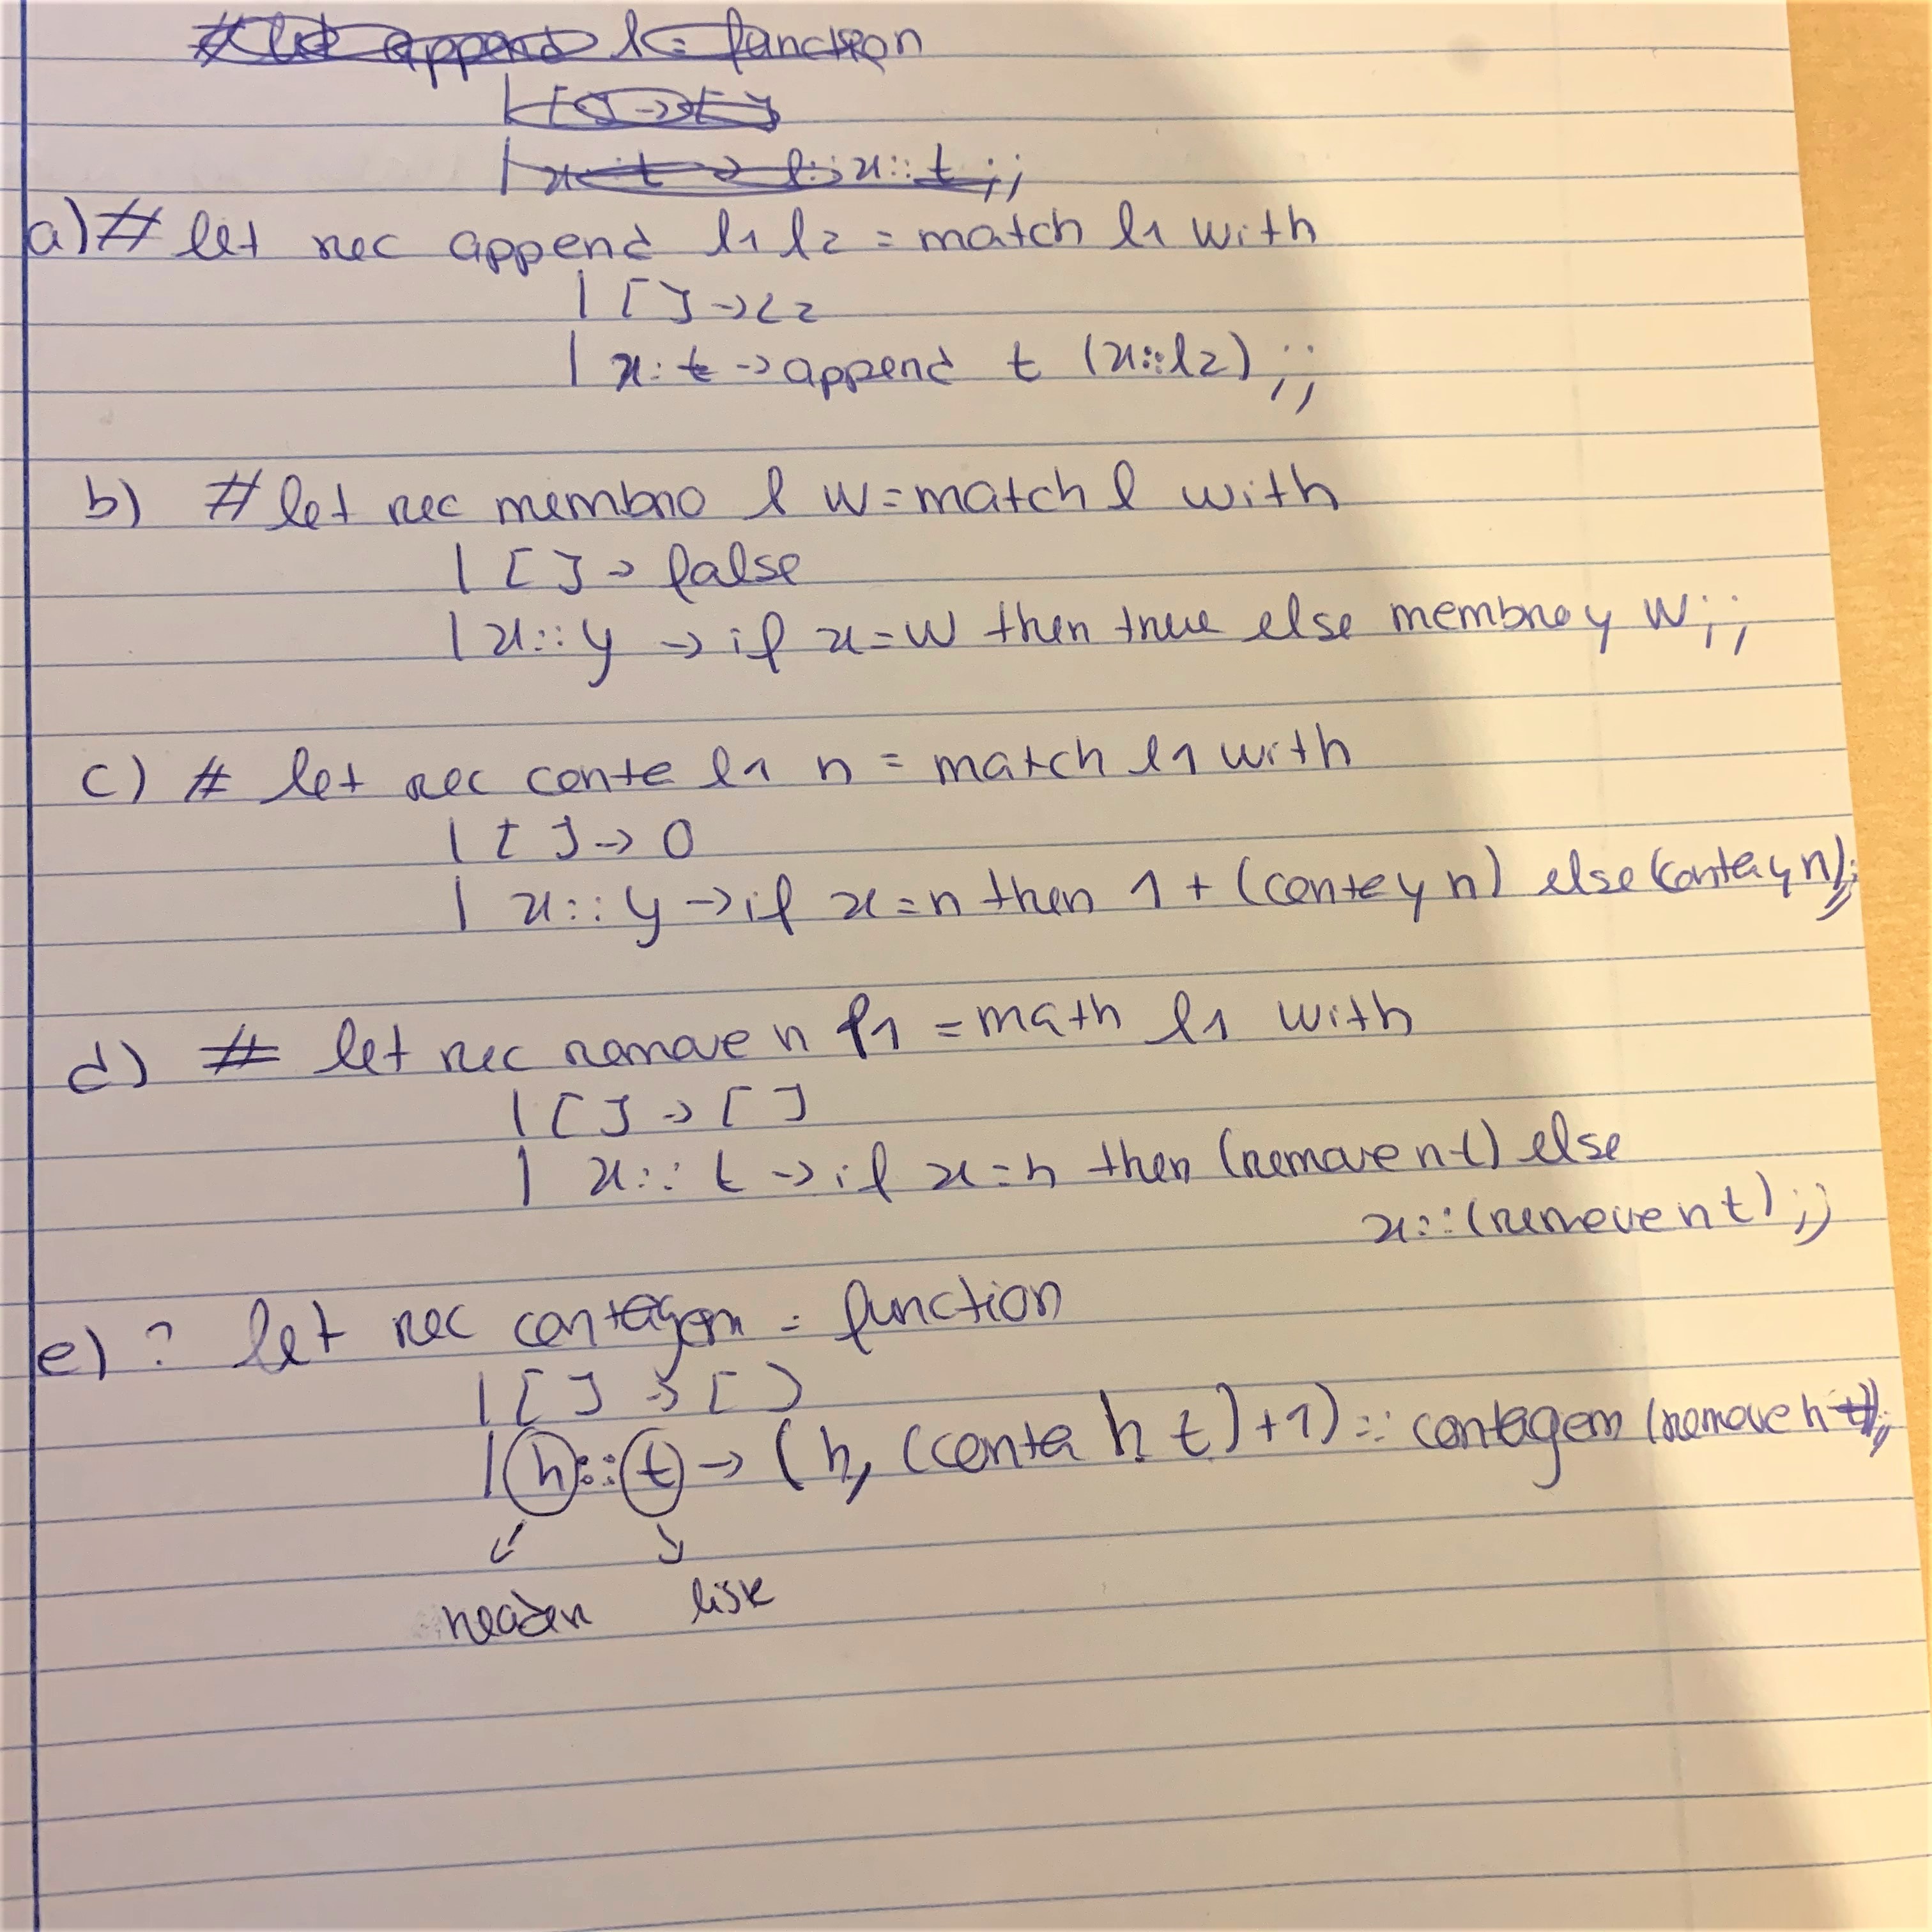 # let append l = function
| [] -> [ ]
| x::t -> l::x::t;;
a) # let rec append l1 l2 = match l1 with
| [] -> L2
| x::t -> append t (x::l2) ;;
b) # let rec membro l w = match l with
| [] -> false
| x::y -> if x = w then true else membro y w;;
c) # let rec conta l1 n = match l1 with
| [] -> 0
| x::y -> if x = n then 1 + (conta y n) else (conta y n);;
d) # let rec remove n l1 = math l1 with
| [] -> []
| x::t -> if x = n then (remove n t) else
x::(remove n t) ;;
e) ? let rec contagem = function
| [] -> [ ]
| h::t -> (h, (conta h t) + 1) :: contagem (remove h t);;
header list